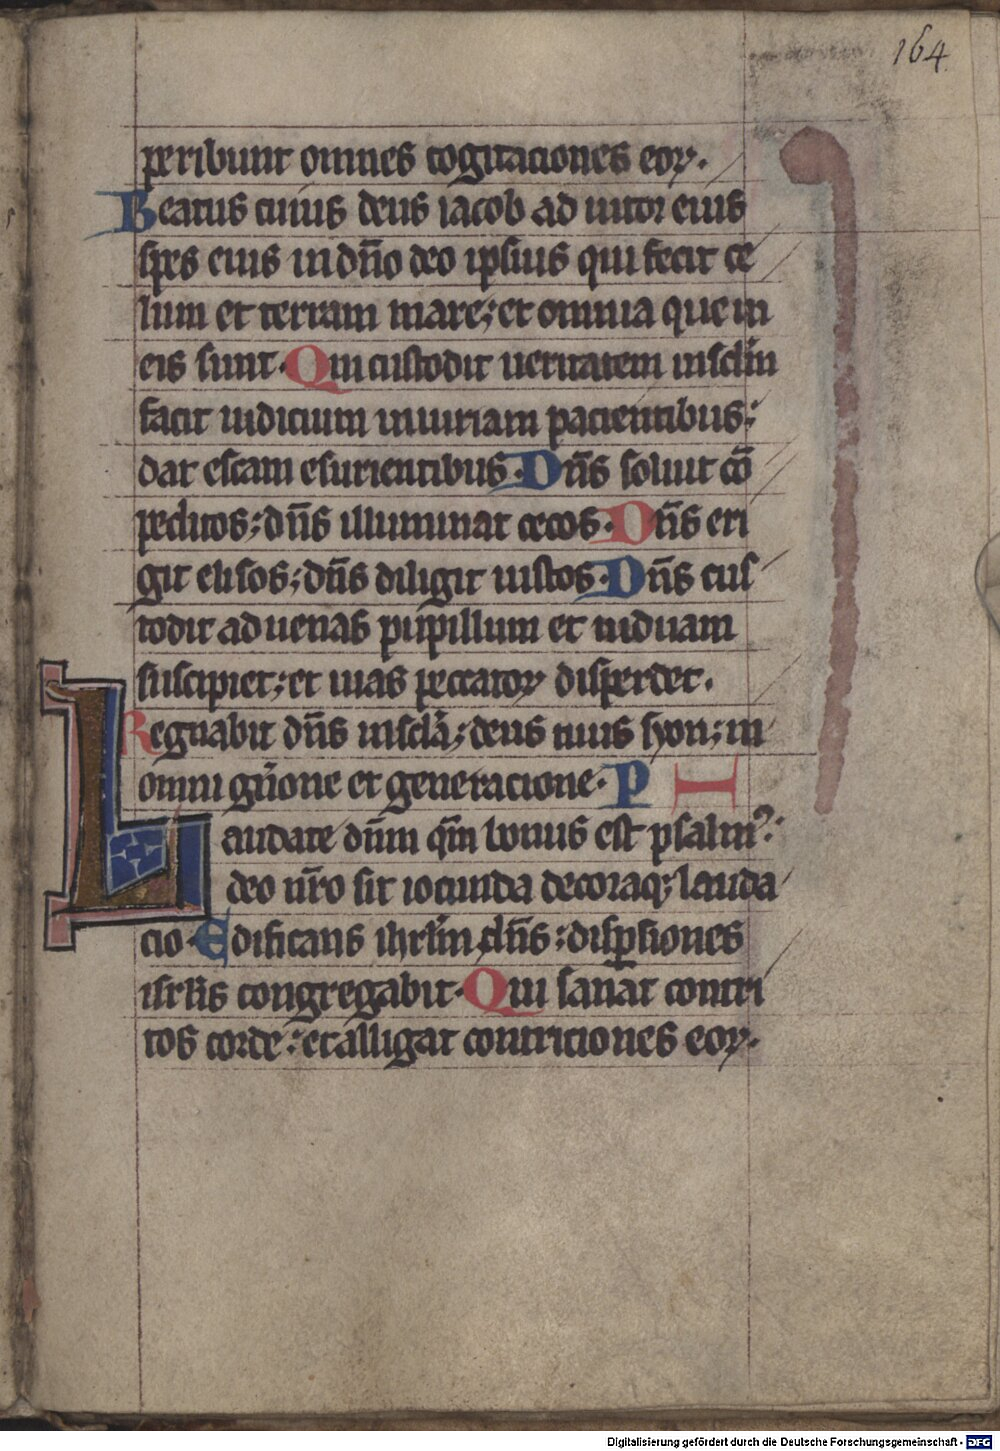 164
peribunt omnes cogitaciones eoꝝ.
Beatus cuius deus iacob adiutor eius
spes eius in dn̄o deo ipsius qui fecit ce
lum et terram mare; et omnia que in
eis sunt. Qui custodit ueritatem in sclm̄
facit iudicium iniuriam pacientibus;
dat escam esurientibus. Dn̄s soluit cō
peditos; dn̄s illuminat cecos. Dn̄s eri
git elisos; dn̄s diligit iustos. Dn̄s cus
todit aduenas pupillum et uiduam
suscipiet; et uias peccatoꝝ disperdet.
Regnabit dn̄s in scla; deus tuus syon; in
omni gn̄one et generacione. P I
Laudate dn̄m qm̄ bonus est psalmꝰ;
deo nr̄o sit iocunda decoraq; lauda
cio. Edificans ihrlm̄ dn̄s; dispersiones
isrlis congregabit. Qui sanat contri
tos corde; et alligat contriciones eoꝝ.
Digitalisierung gefördert durch die Deutsche Forschungsgemeinschaft - DFG